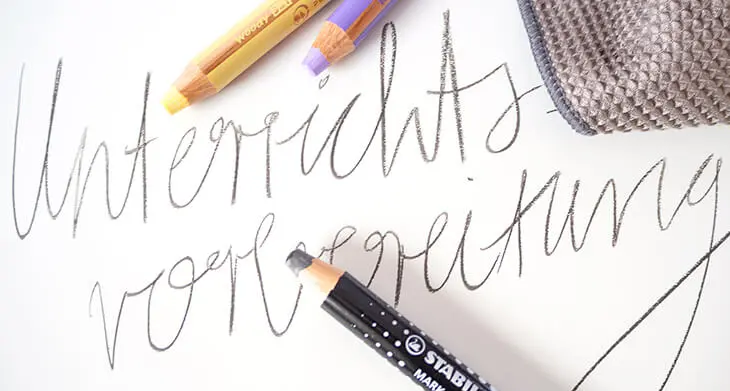 Woody
Unterrichts
vorbereitung
STABIL
MARK